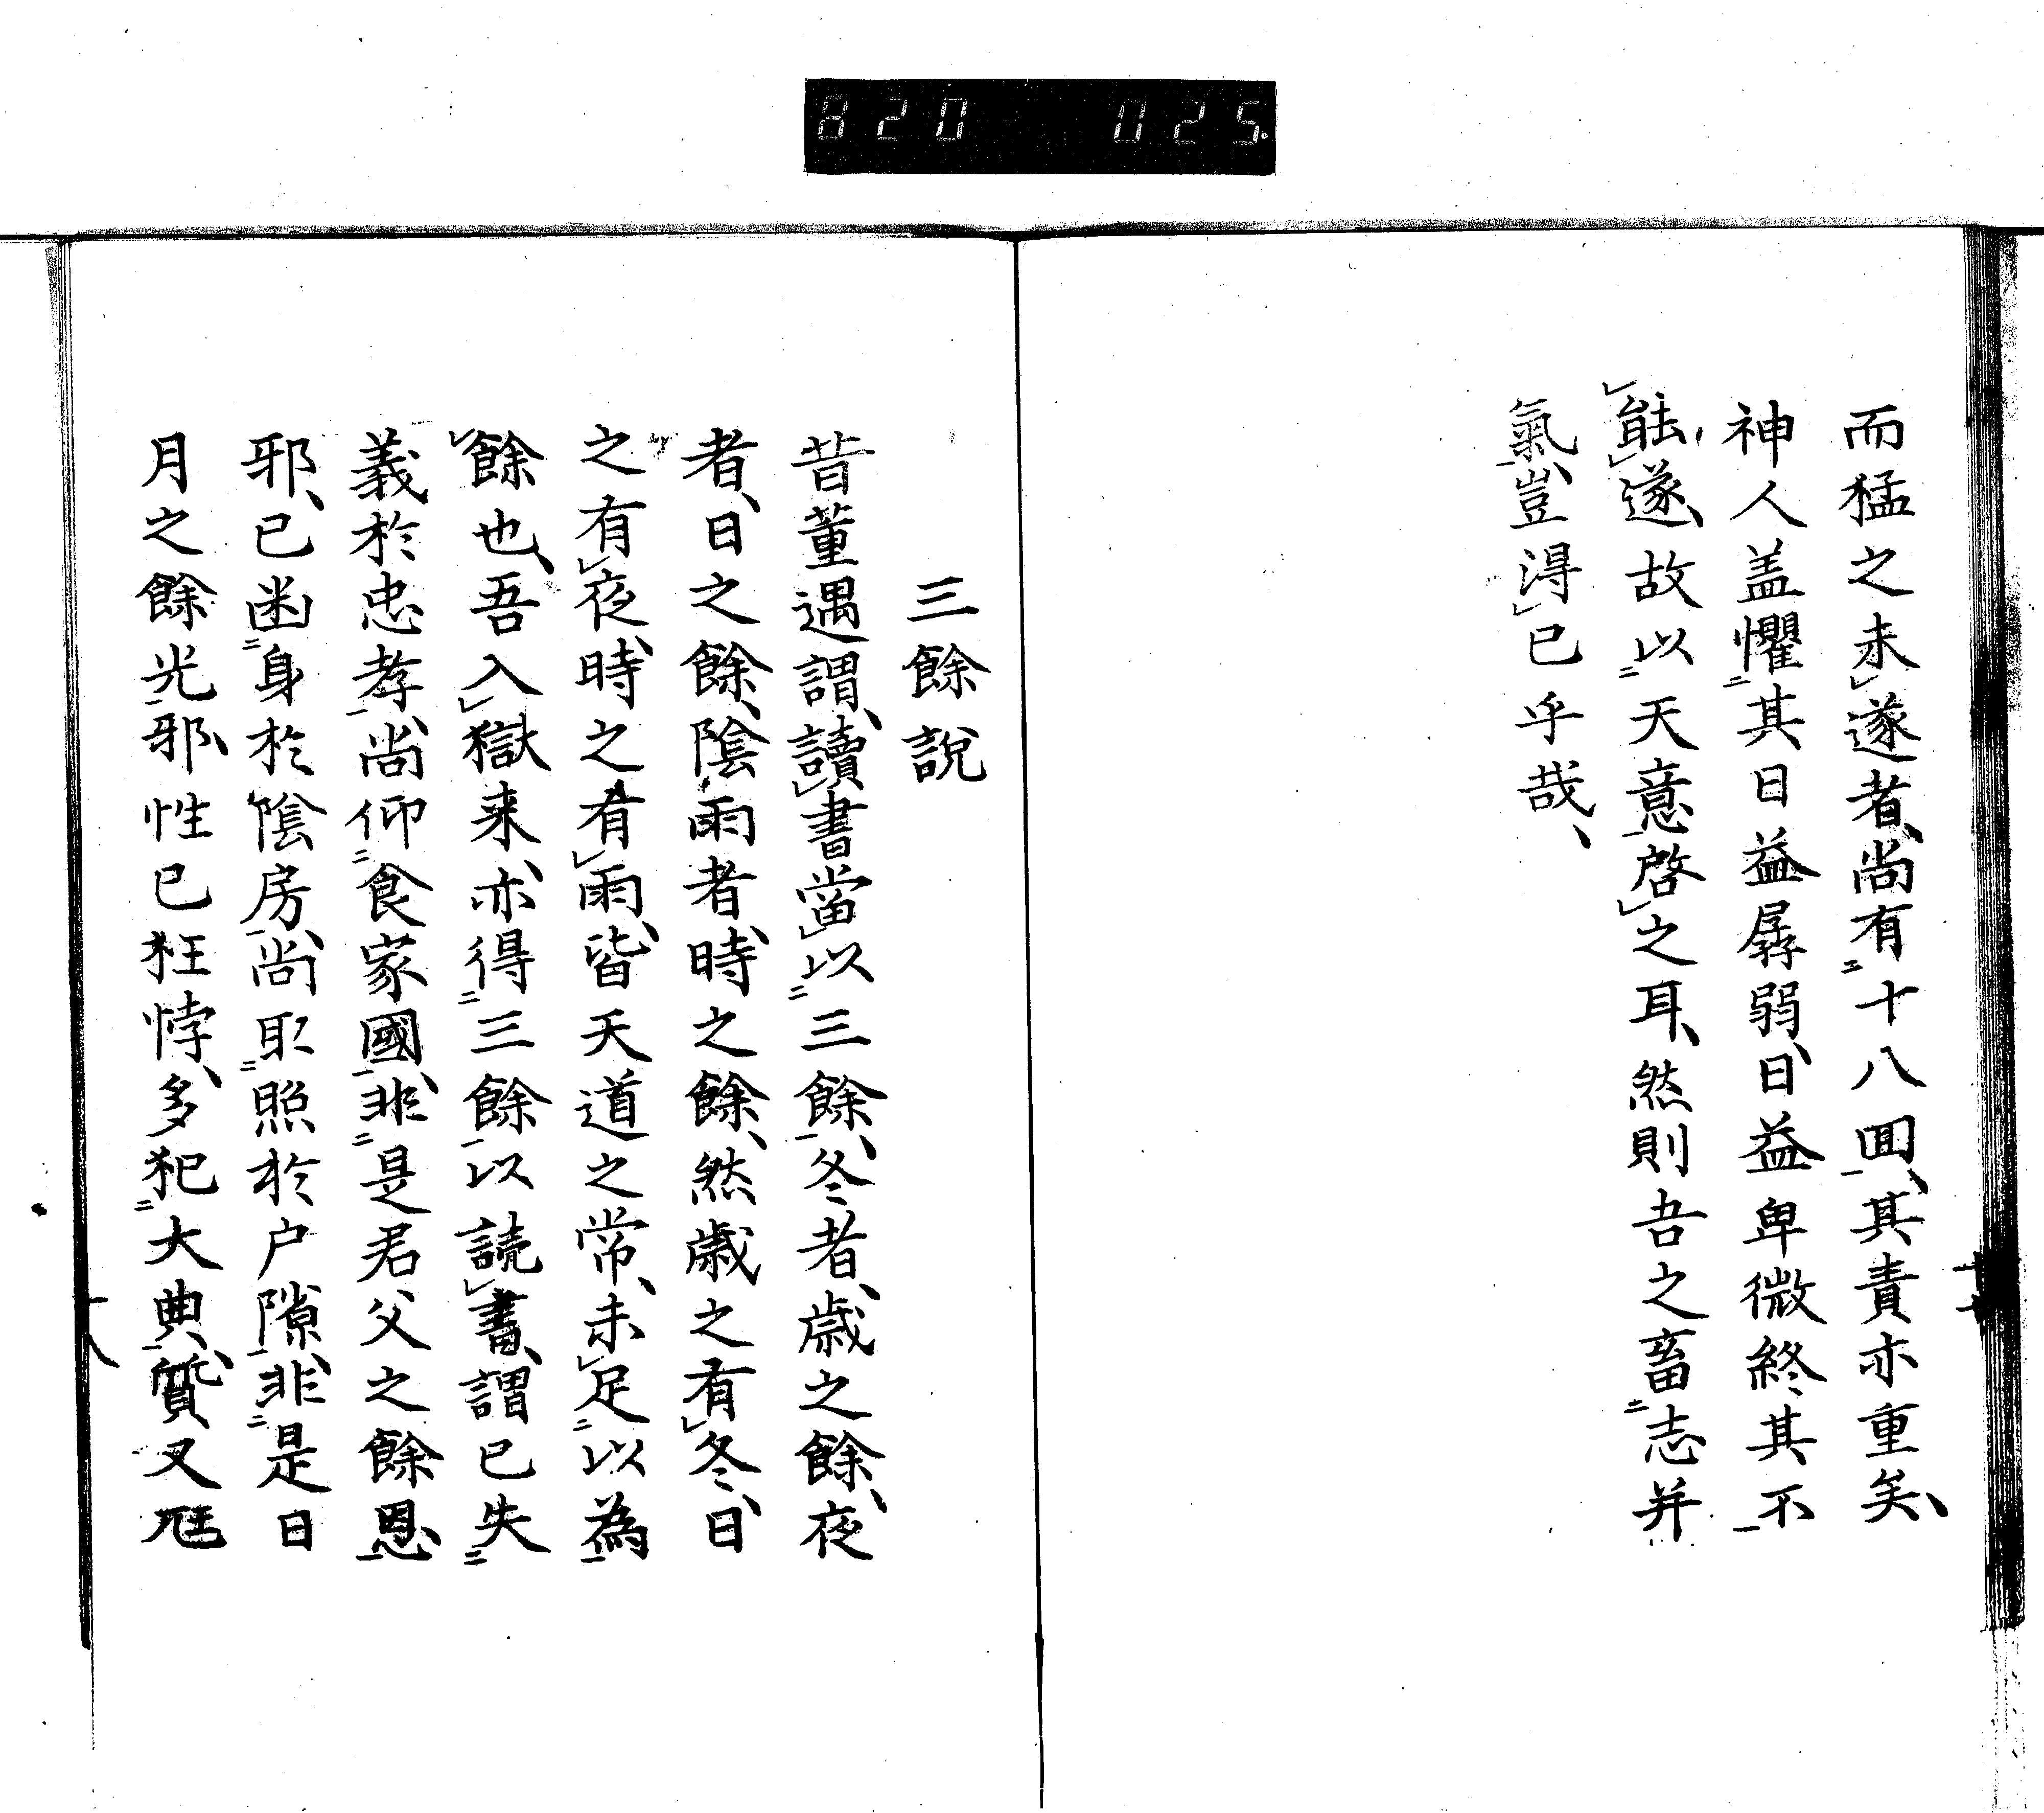 820 025.
而猛之未遂者、尚有十八回、其責亦重矣、
神人盖懼其日益孱弱、日益卑微終其不
能遂、故以天意啓之耳、然則吾之畜志并
氣、豈淂已乎哉、
三餘說
昔董遇謂、讀書當以三餘、冬者、歲之餘、夜
者、日之餘、陰雨者、時之餘、然歲之有冬、日
之有夜、時之有雨、皆天道之常、未足以為
餘也、吾入獄来、亦得三餘以読書、謂已失
義於忠孝、尚仰食家國、非是君父之餘恩
邪、已幽身於陰房、尚取照於户隙、非是日
月之餘光邪、性已狂悖、多犯大典、質又尫
十七
十八